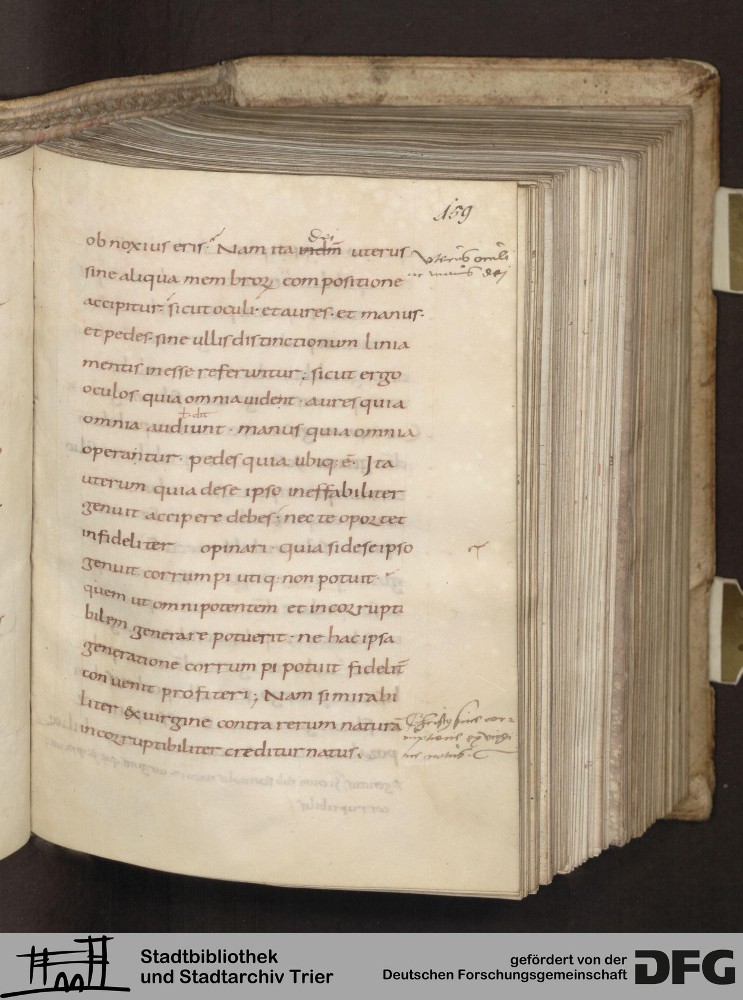 159
obnoxius eris. Nam ita uterus
dei
uterus oculi
ac manus dei
sine aliqua membroꝝ compositione
accipitur. sicut oculi. et aures. et manus.
et pedes. sine ullis distinctionum linia
mentis inesse referuntur; sicut ergo
oculos quia omnia uident. aures quia
omnia audiunt. manus quia omnia
operantur. pedes quia ubiq: ē. Ita
uterum quia de se ipso ineffabiliter
genuit accipere debes. nec te oportet
infideliter opinari. quia si de se ipso
genuit corrumpi utiq: non potuit.
quem ut omnipotentem et incorrupti
bilem generare potuerit. ne hac ipsa
generatione corrumpi potuit fidelit̄
conuenit profiteri; Nam si mirabi
liter & uirgine contra rerum naturā
incorruptibiliter creditur natus.
Christus sine cor=
ruptione ex virgi
ne natus.
Stadtbibliothek
und Stadtarchiv Trier
gefördert von der
Deutschen Forschungsgemeinschaft
DFG